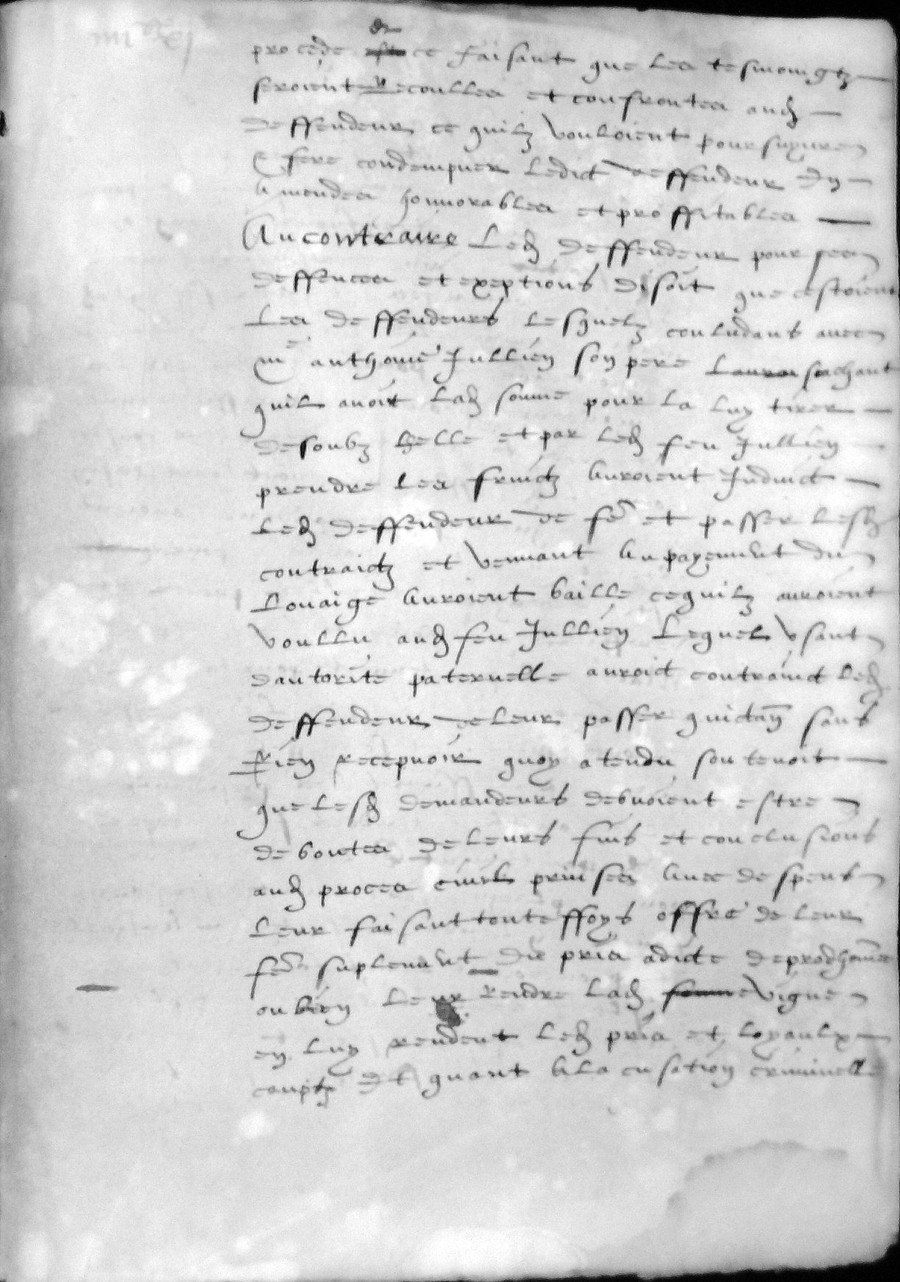 et
procede ce faisant que les tesmoingtz
seroient Recoulles et confrontes aud
deffendeur ce quilz vouloient poursuyure
& fere condempner ledict deffendeur en
amendes honnorables et proffitables
Au contraire led deffendeur pour ses
deffences et exeptions disoit que cestoient
les deffendeurs lesquelz coludans avec
me anthoine Jullien son pere sachant
quil avoit lad somme pour la luy tirer
desoubz helle et par led feu Jullien
prendre les fruictz auroient Induict
led deffendeur de fe et passer lesd
contraictz et venant au payement du
Louaige auroient baille ce quilz auroient
voullu aud feu Jullien Lequel usant
dautorite paternelle auroict contrainct led
deffendeur de leur passer quictan sans
Rien recepuoir quoy atendu soutenoit
que lesd demandeurs debuoient estre
deboutes de leurs fins et conclusions
aud proces civil prinses avec despens
leur faisant touteffoys offre de leur
fe suplement du pris adicte de prodhomes
ou bien leur Rendre lad vigne
en luy rendent led pris et loyaulx
coupts Et quant a la cusation criminelle